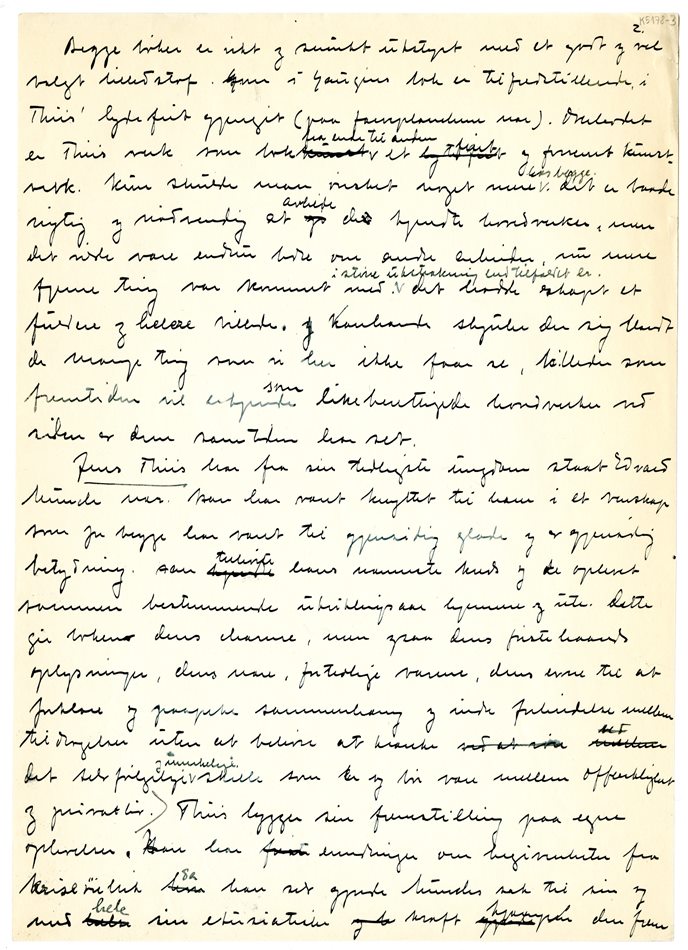 K5178-3
2.
Begge bøker er rikt og smukt utstyret med et godt og vel
valgt billedstof. Som i Gauguins bok er tilfredstillende, i
Thiis' lydefrit gjengit (paa farveplanchene nær). Overhodet
er Thiis verk, som bok fra ende til anden et og fornemt kunst-
verk. Kun skulde man ønsket noget mere hos begge. det er baade
rigtig og nødvendig at arbeide de kjendte hovedverker, men
det vilde være endnu bedre om andre arbeider, nu mere
fjerne ting var kommet med i større utstrækning end tilfældet er. det hadde skapt et
fuldere og helere billede. Kanhænde skjuler der sig blandt
de mange ting som vi her ikke faar se, billeder som
fremtiden vil erkjende som likeberettigede hovedverker ved
siden av dem samtiden har set.
Jens Thiis har fra sin tidligste ungdom staat Edvard
Munch nær. Han har vært knyttet til ham i et venskap
som jo begge har vært til gjensidig glæde og av gjensidig
betydning. Han tilhørte hans nærmeste kreds og de oplevet
sammen bestemmende utviklingsaar hjemme og ute. Dette
gir boken dens charme, men ogsaa dens førstehaands
oplysninger, dens nære, fortrolige varme, dens evne til at
forklare og paapeke sammenhæng og indre forbindelse mellem
tildragelser uten at behøve at krænke ved
det selvfølgelige og rimelige skille som er og bør være mellem offentlighet
og privatliv. Thiis bygger sin fremstilling paa egne
oplevelser. Han har erindringer om begivenheter fra
da han selv gjorde Munchs sak til sin og
med hele sin etusiastiske kraft den frem